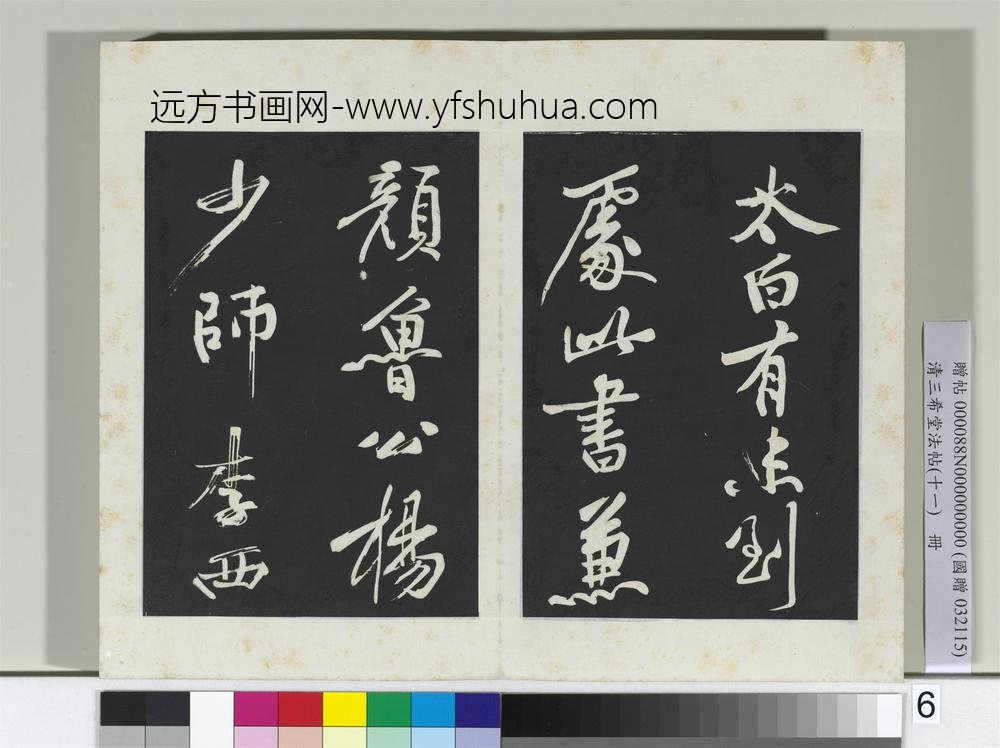 远方书画网-www.yfshuhua.com
太白有未到
處此書兼
顏魯公楊
少師李西
贈帖 000088N000000000 (國贈 032115)
清三希堂法帖(十一) 冊
6